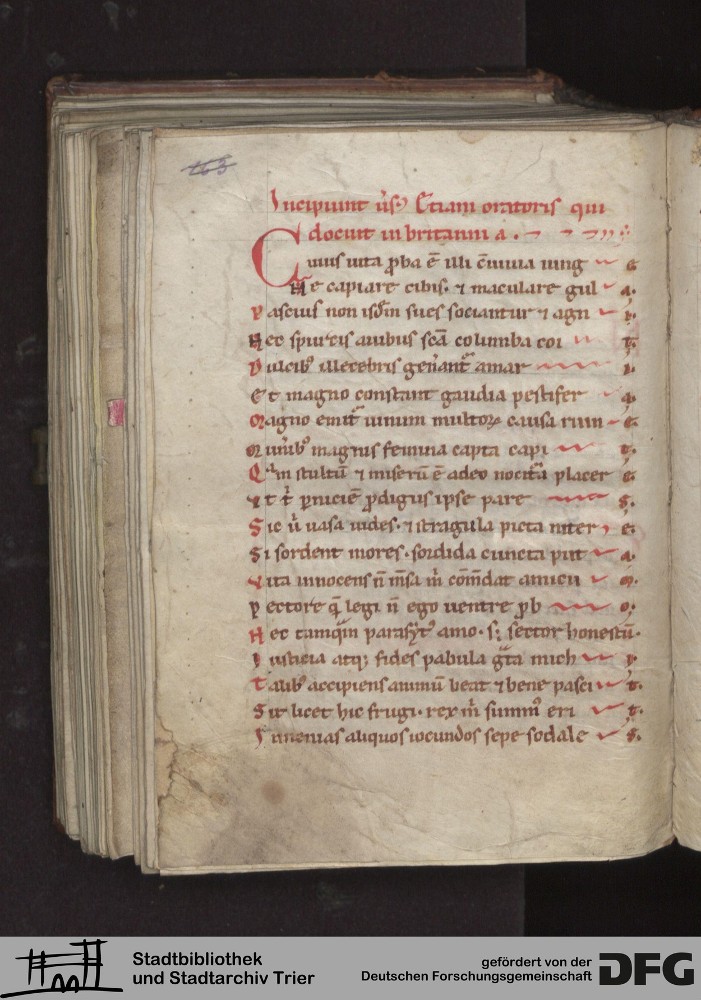 163
Incipiunt ūs᷒ Etiam oratoris qui
docuit in britanni a .
Cuius uita ꝓba ē illi c̄uiuia iung e
Ne capiare cibis. ⁊ maculare gul a.
Pascius non isdm̄ sues sociantur ⁊ agni
Nec spurcis auibus scā columba coi t.
Dulcibꝰ illecebris gen̄ant amar
Et magno constant gaudia pestifer a.
Magno emit uinum multoꝝ causa ruin e.
Munibꝰ magnis femina capta capi t.
Qm stultū ⁊ miserū ē adeo nocitᵃ placer e.
Vt t̄ ꝑniciē ꝓdigus ipse pare s.
Sic ū uasa uides. ⁊ stragula picta niter e.
Si sordent mores. sordida cuncta put a.
Vita innocens n̄ m̄sa m̄ com̄dat amicu m.
Pectore q̄ legi n̄ ego uentre ꝓb o.
Nec tamqm̄ parasytꝰ amo. sꝫ sector honestū.
Iusticia atqꝫ fides pabula gᵃta mich i.
Talibꝰ accipiens animū beat ⁊ bene pasci t.
Sit licet hic frugi. rex m̄ summꝰ eri t.
Inuenias aliquos iocundos sepe sodale s.
Stadtbibliothek
und Stadtarchiv Trier
gefördert von der
Deutschen Forschungsgemeinschaft
DFG